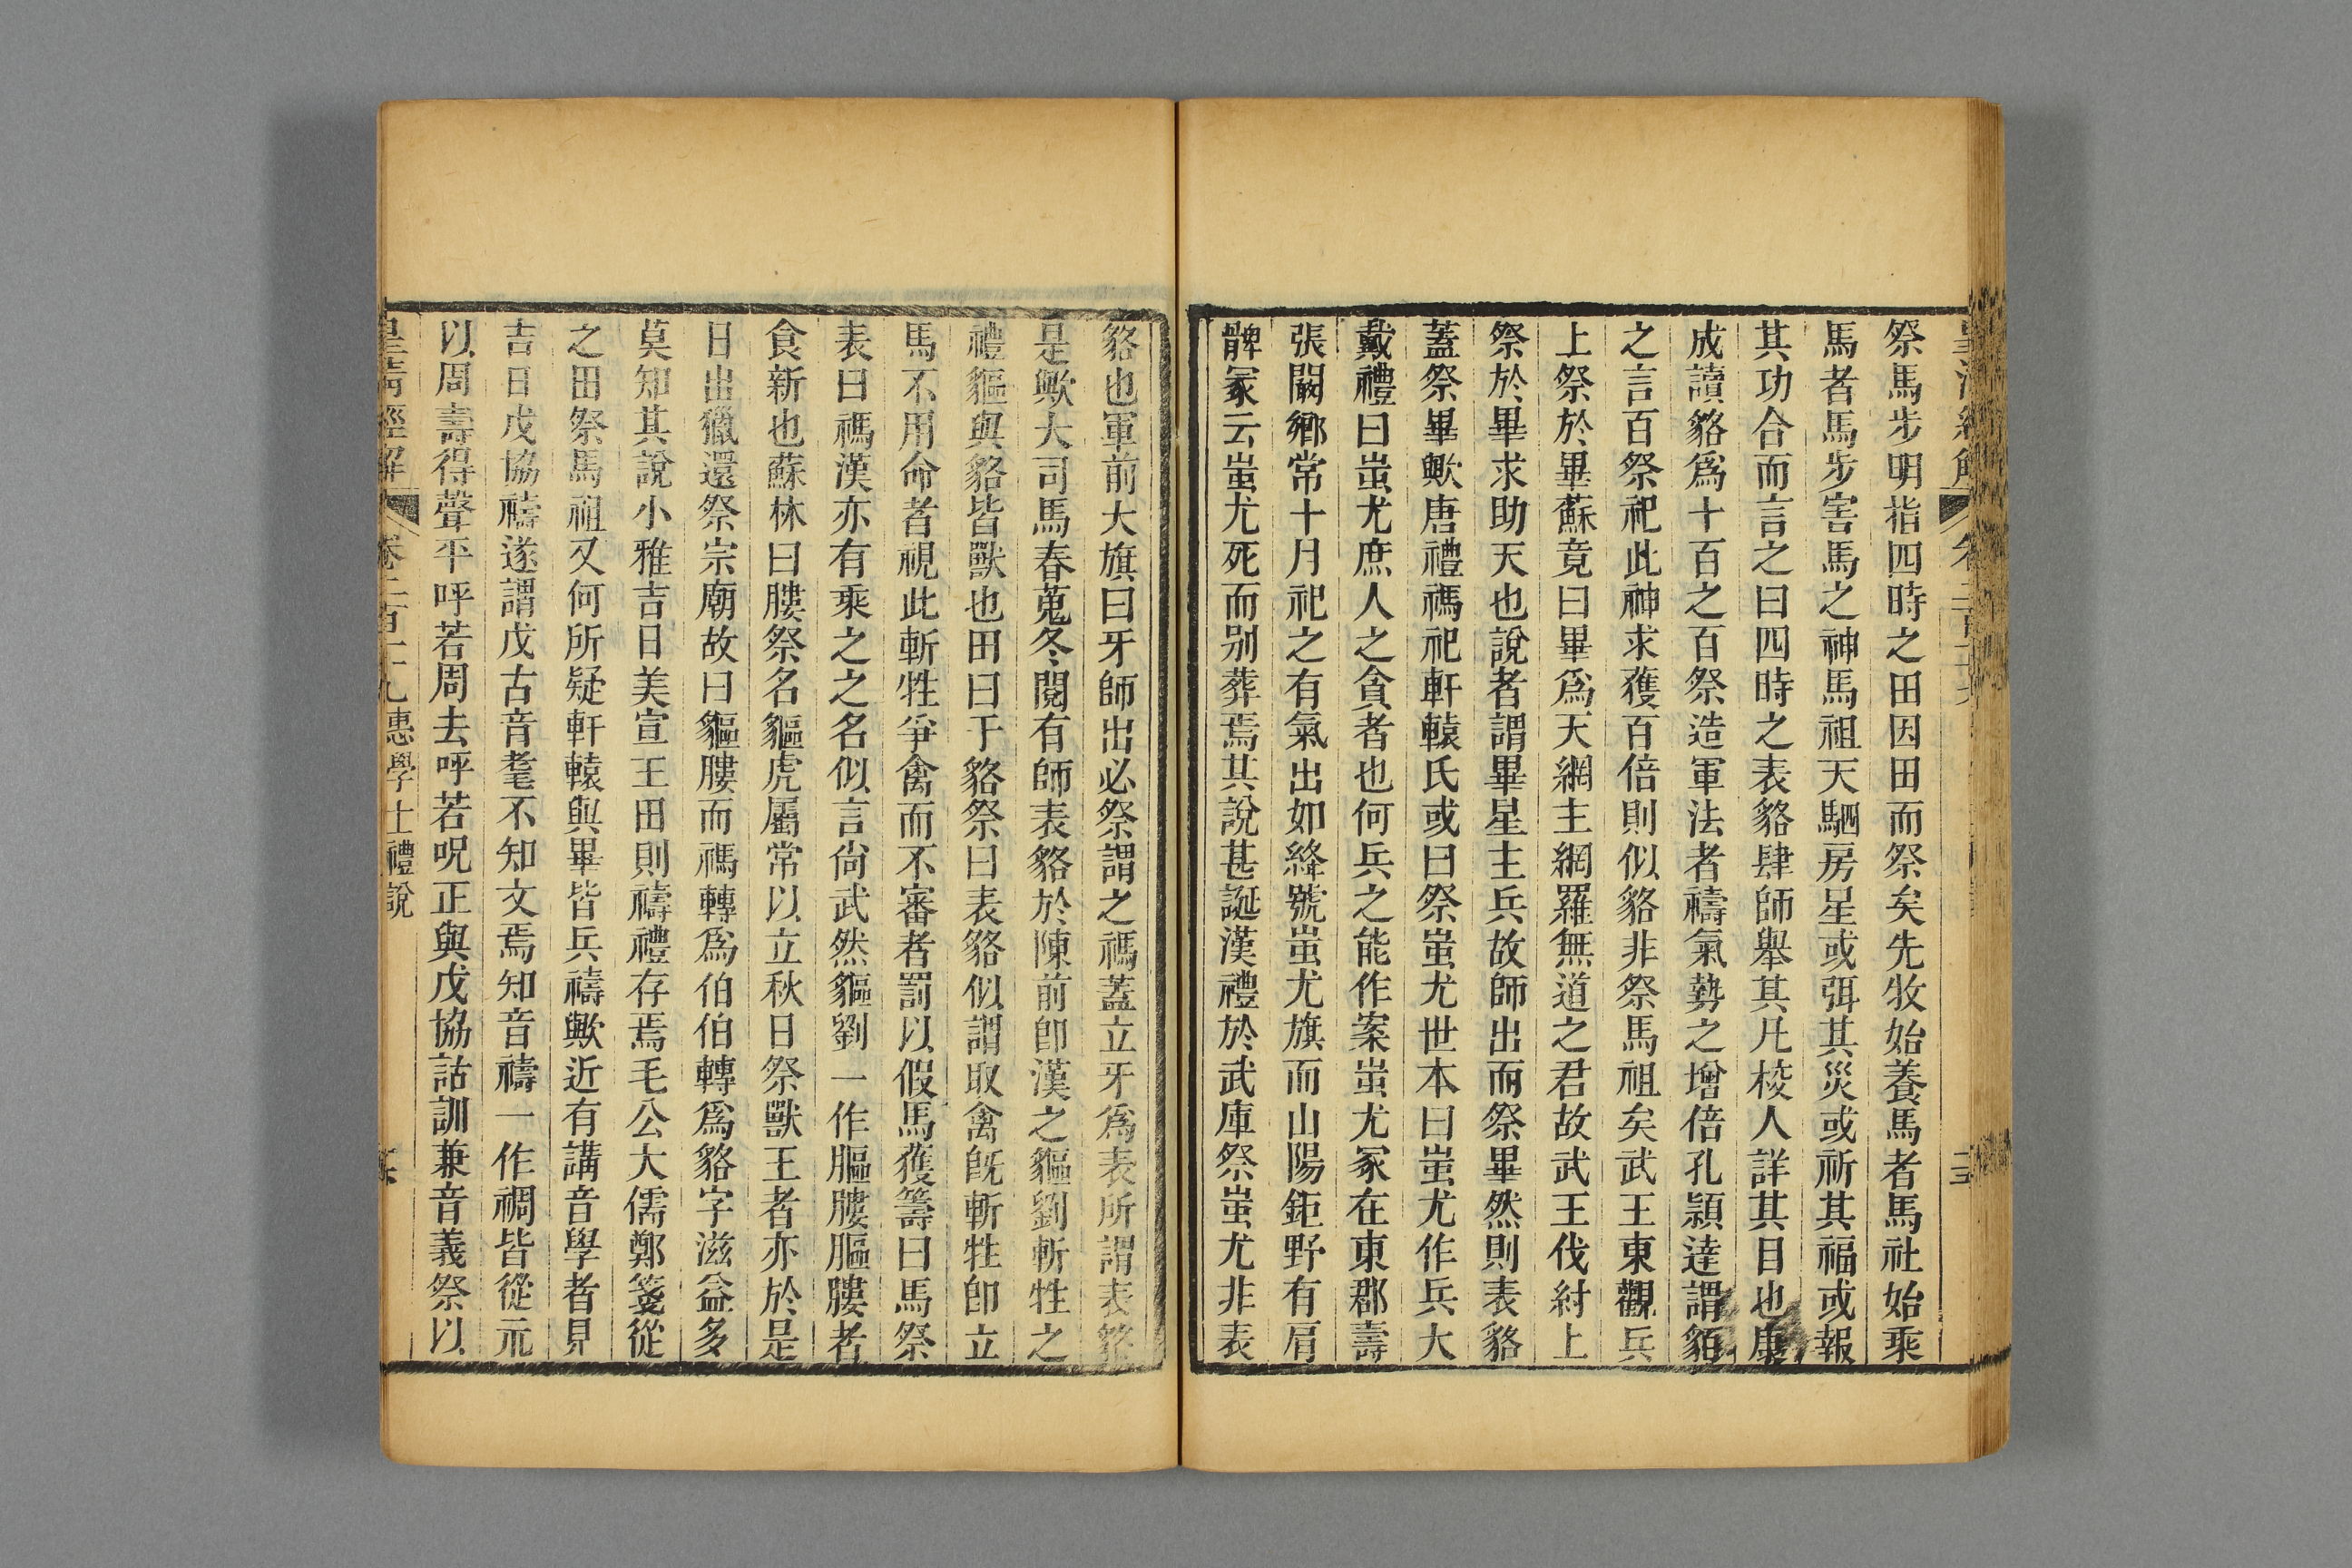 祭馬步明指四時之田因田而祭矣先牧始養馬者馬社始乘
馬者馬步害馬之神馬祖天駟房星或弭其災或祈其福或報
其功合而言之曰四時之表貉肆師舉其凡校人詳其目也康
成讀貉爲十百之百祭造軍法者禱氣勢之增倍孔穎達謂貊
之言百祭祀此神求獲百倍則似貉非祭馬祖矣武王東觀兵
上祭於畢蘇竟曰畢爲天網主網羅無道之君故武王伐紂上
祭於畢求助天也說者謂畢星主兵故師出而祭畢然則表貉
蓋祭畢歟唐禮禡祀軒轅氏或曰祭蚩尤世本曰蚩尤作兵大
戴禮曰蚩尤庶人之貪者也何兵之能作案蚩尤冢在東郡壽
張闞鄉常十月祀之有氣出如絳號蚩尤旗而山陽鉅野有肩
髀冢云蚩尤死而别葬焉其說甚誕漢禮於武庫祭蚩尤非表
貉也軍前大旗曰牙師出必祭謂之禡蓋立牙爲表所謂表貉
是歟大司馬春蒐冬閱有師表貉於陳前卽漢之貙劉斬牲之
禮貙與貉皆獸也田曰于貉祭曰表貉似謂取禽旣斬牲卽立
馬不用命者視此斬牲爭禽而不審者罰以假馬獲籌曰馬祭
表曰禡漢亦有乘之之名似言尙武然貙劉一作膒膢膒膢者
食新也蘇林曰膢祭名貙虎屬常以立秋日祭獸王者亦於是
日出獵還祭宗廟故曰貙膢而禡轉爲伯伯轉爲貉字滋益多
莫知其說小雅吉日美宣王田則禱禮存焉毛公大儒鄭箋從
之田祭馬祖又何所疑軒轅與畢皆兵禱歟近有講音學者見
吉日戊協禱遂謂戊古音耄不知文焉知音禱一作禂皆從示
以周壽得聲平呼若周去呼若呪正與戊協詁訓兼音義祭以
皇清經解 卷二百十九 惠學士禮說